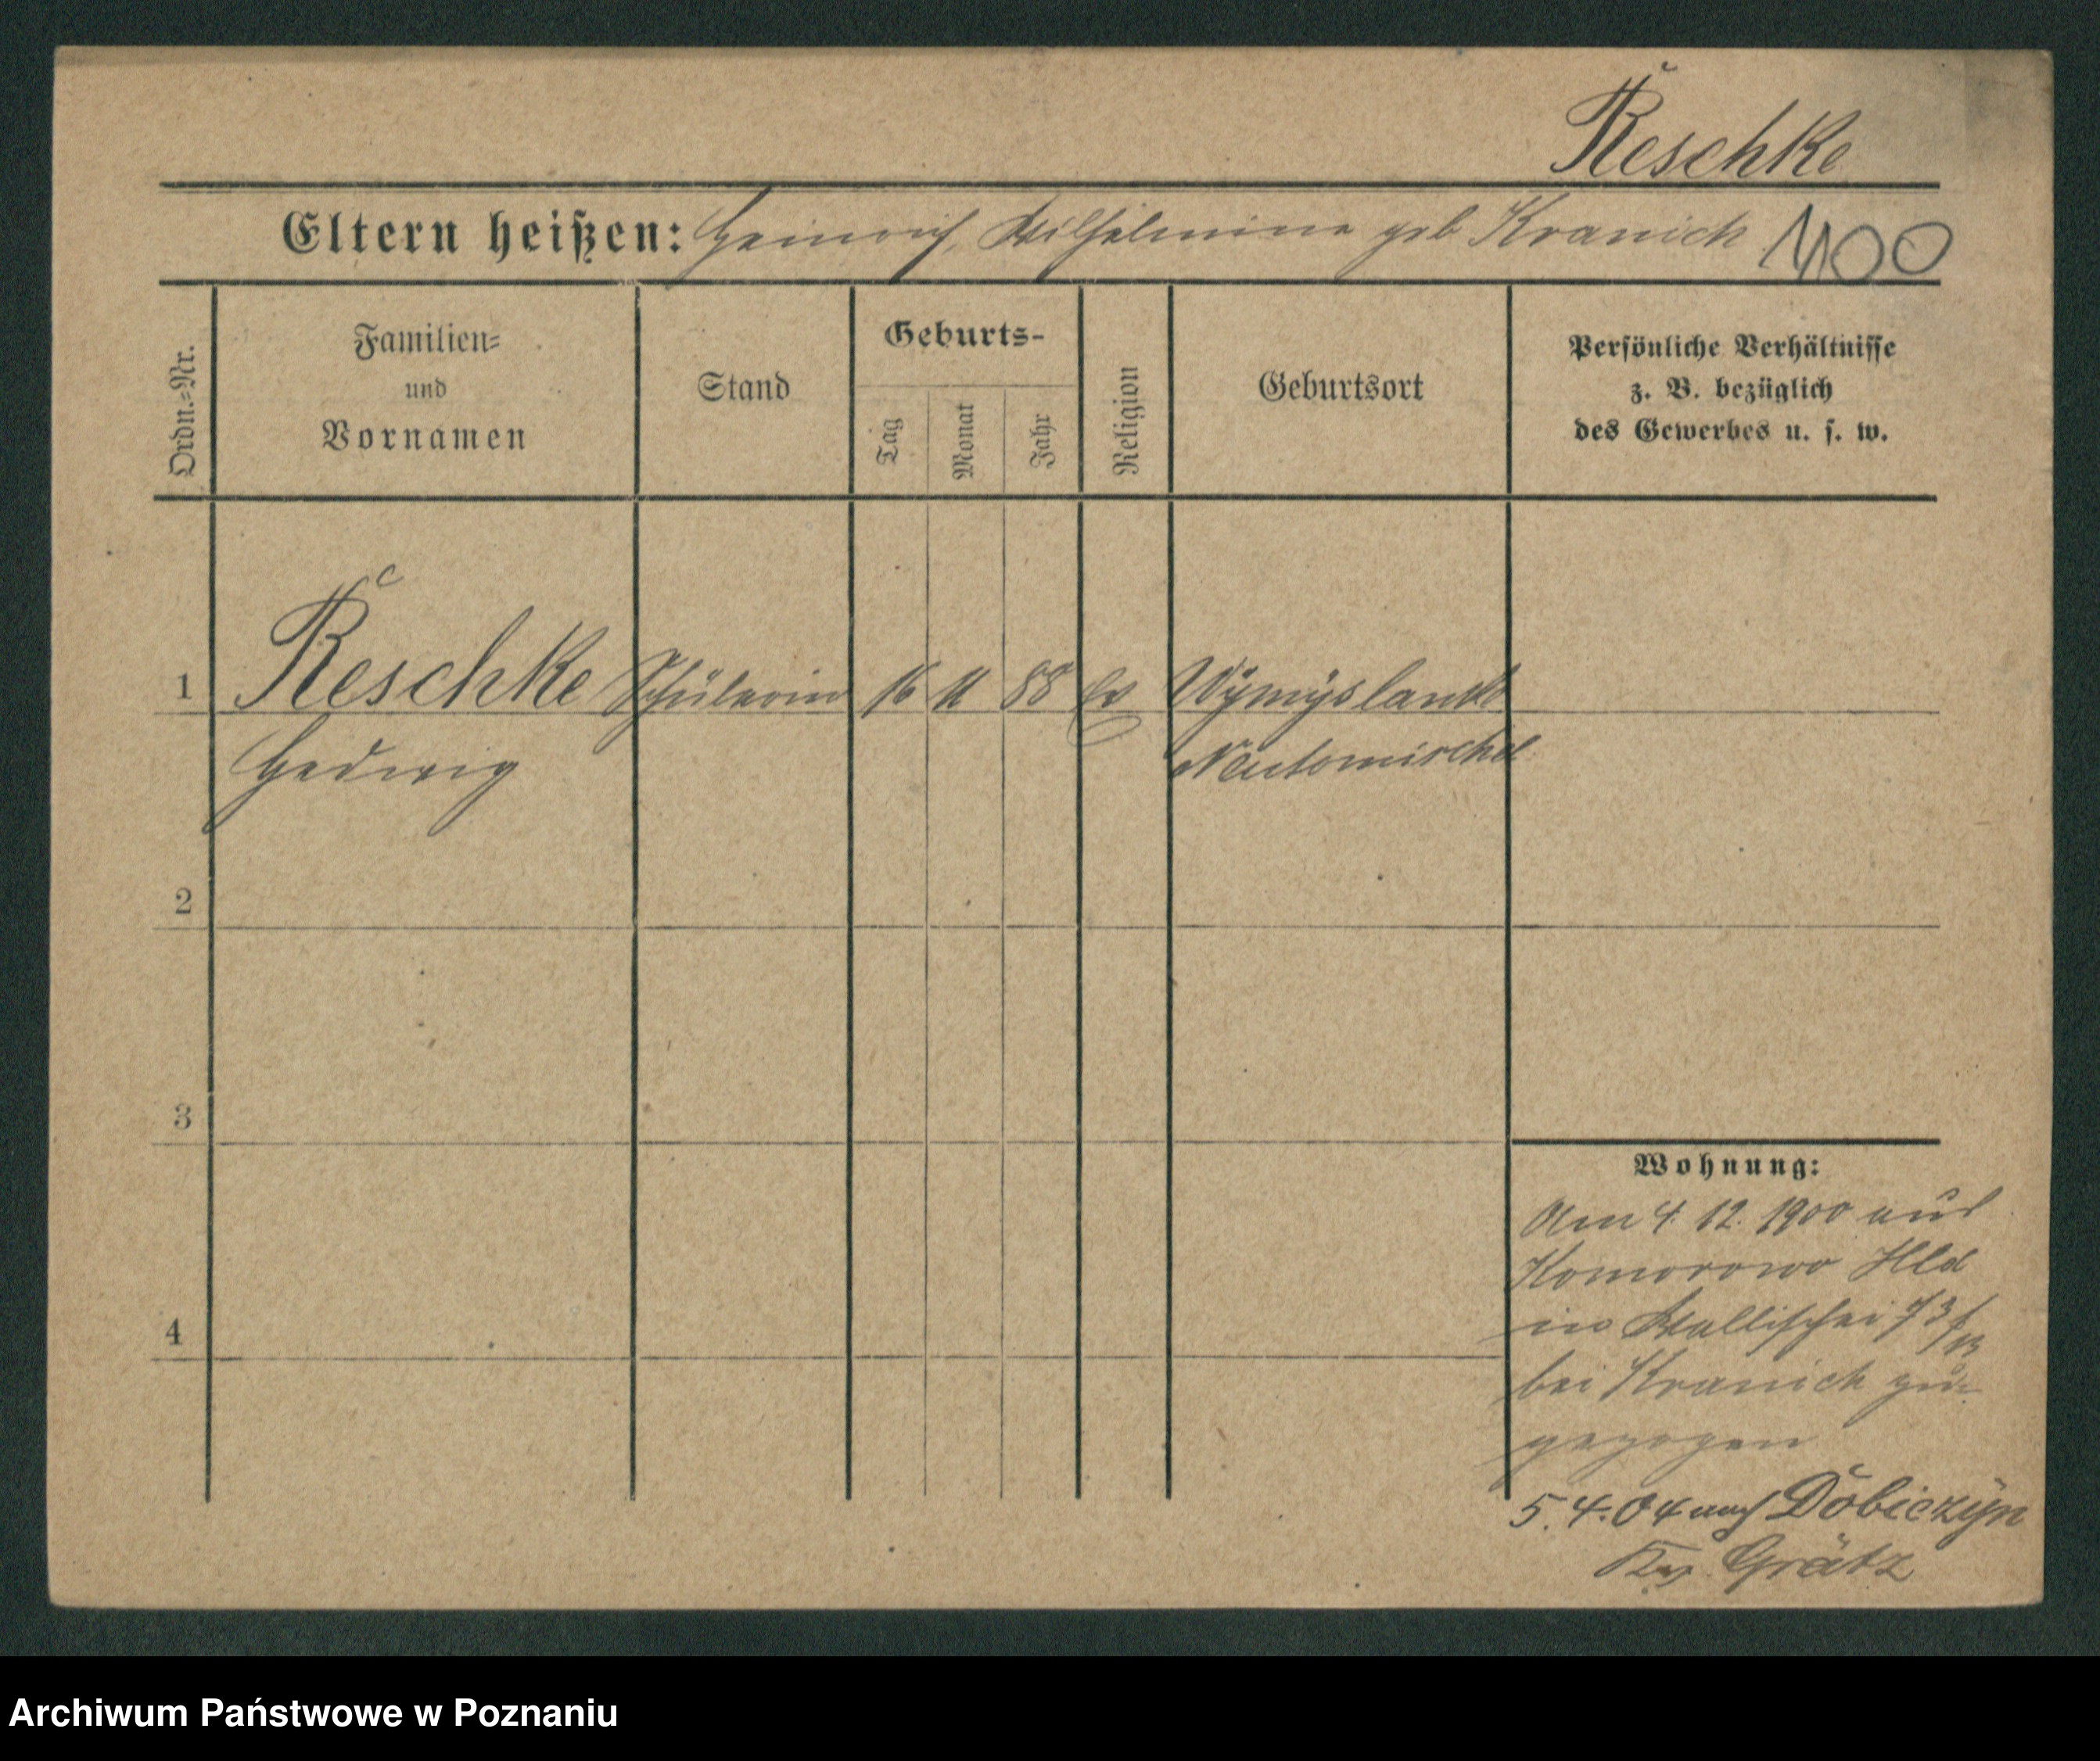 Reschke
Eltern heißen: Heinrich, Wilhelmine geb Kranich 400
Ordn.=Nr.
Familien=
und
Vornamen
Stand
Geburts-
Tag
Monat
Jahr
Religion
Geburtsort
Persönliche Verhältnisse
z. B. bezüglich
des Gewerbes u. s. w.
1 Reschke Schülerin 16 11 88 ev
Hedwig Neutomischel
2
3
4
Wohnung:
Am 4. 12. 1900 aus
Komorowo Hld
in Wallischei 73/
bei Kranich zu=
gezogen
5.4.04 nach Dobiczyn
Grätz
Archiwum Państwowe w Poznaniu